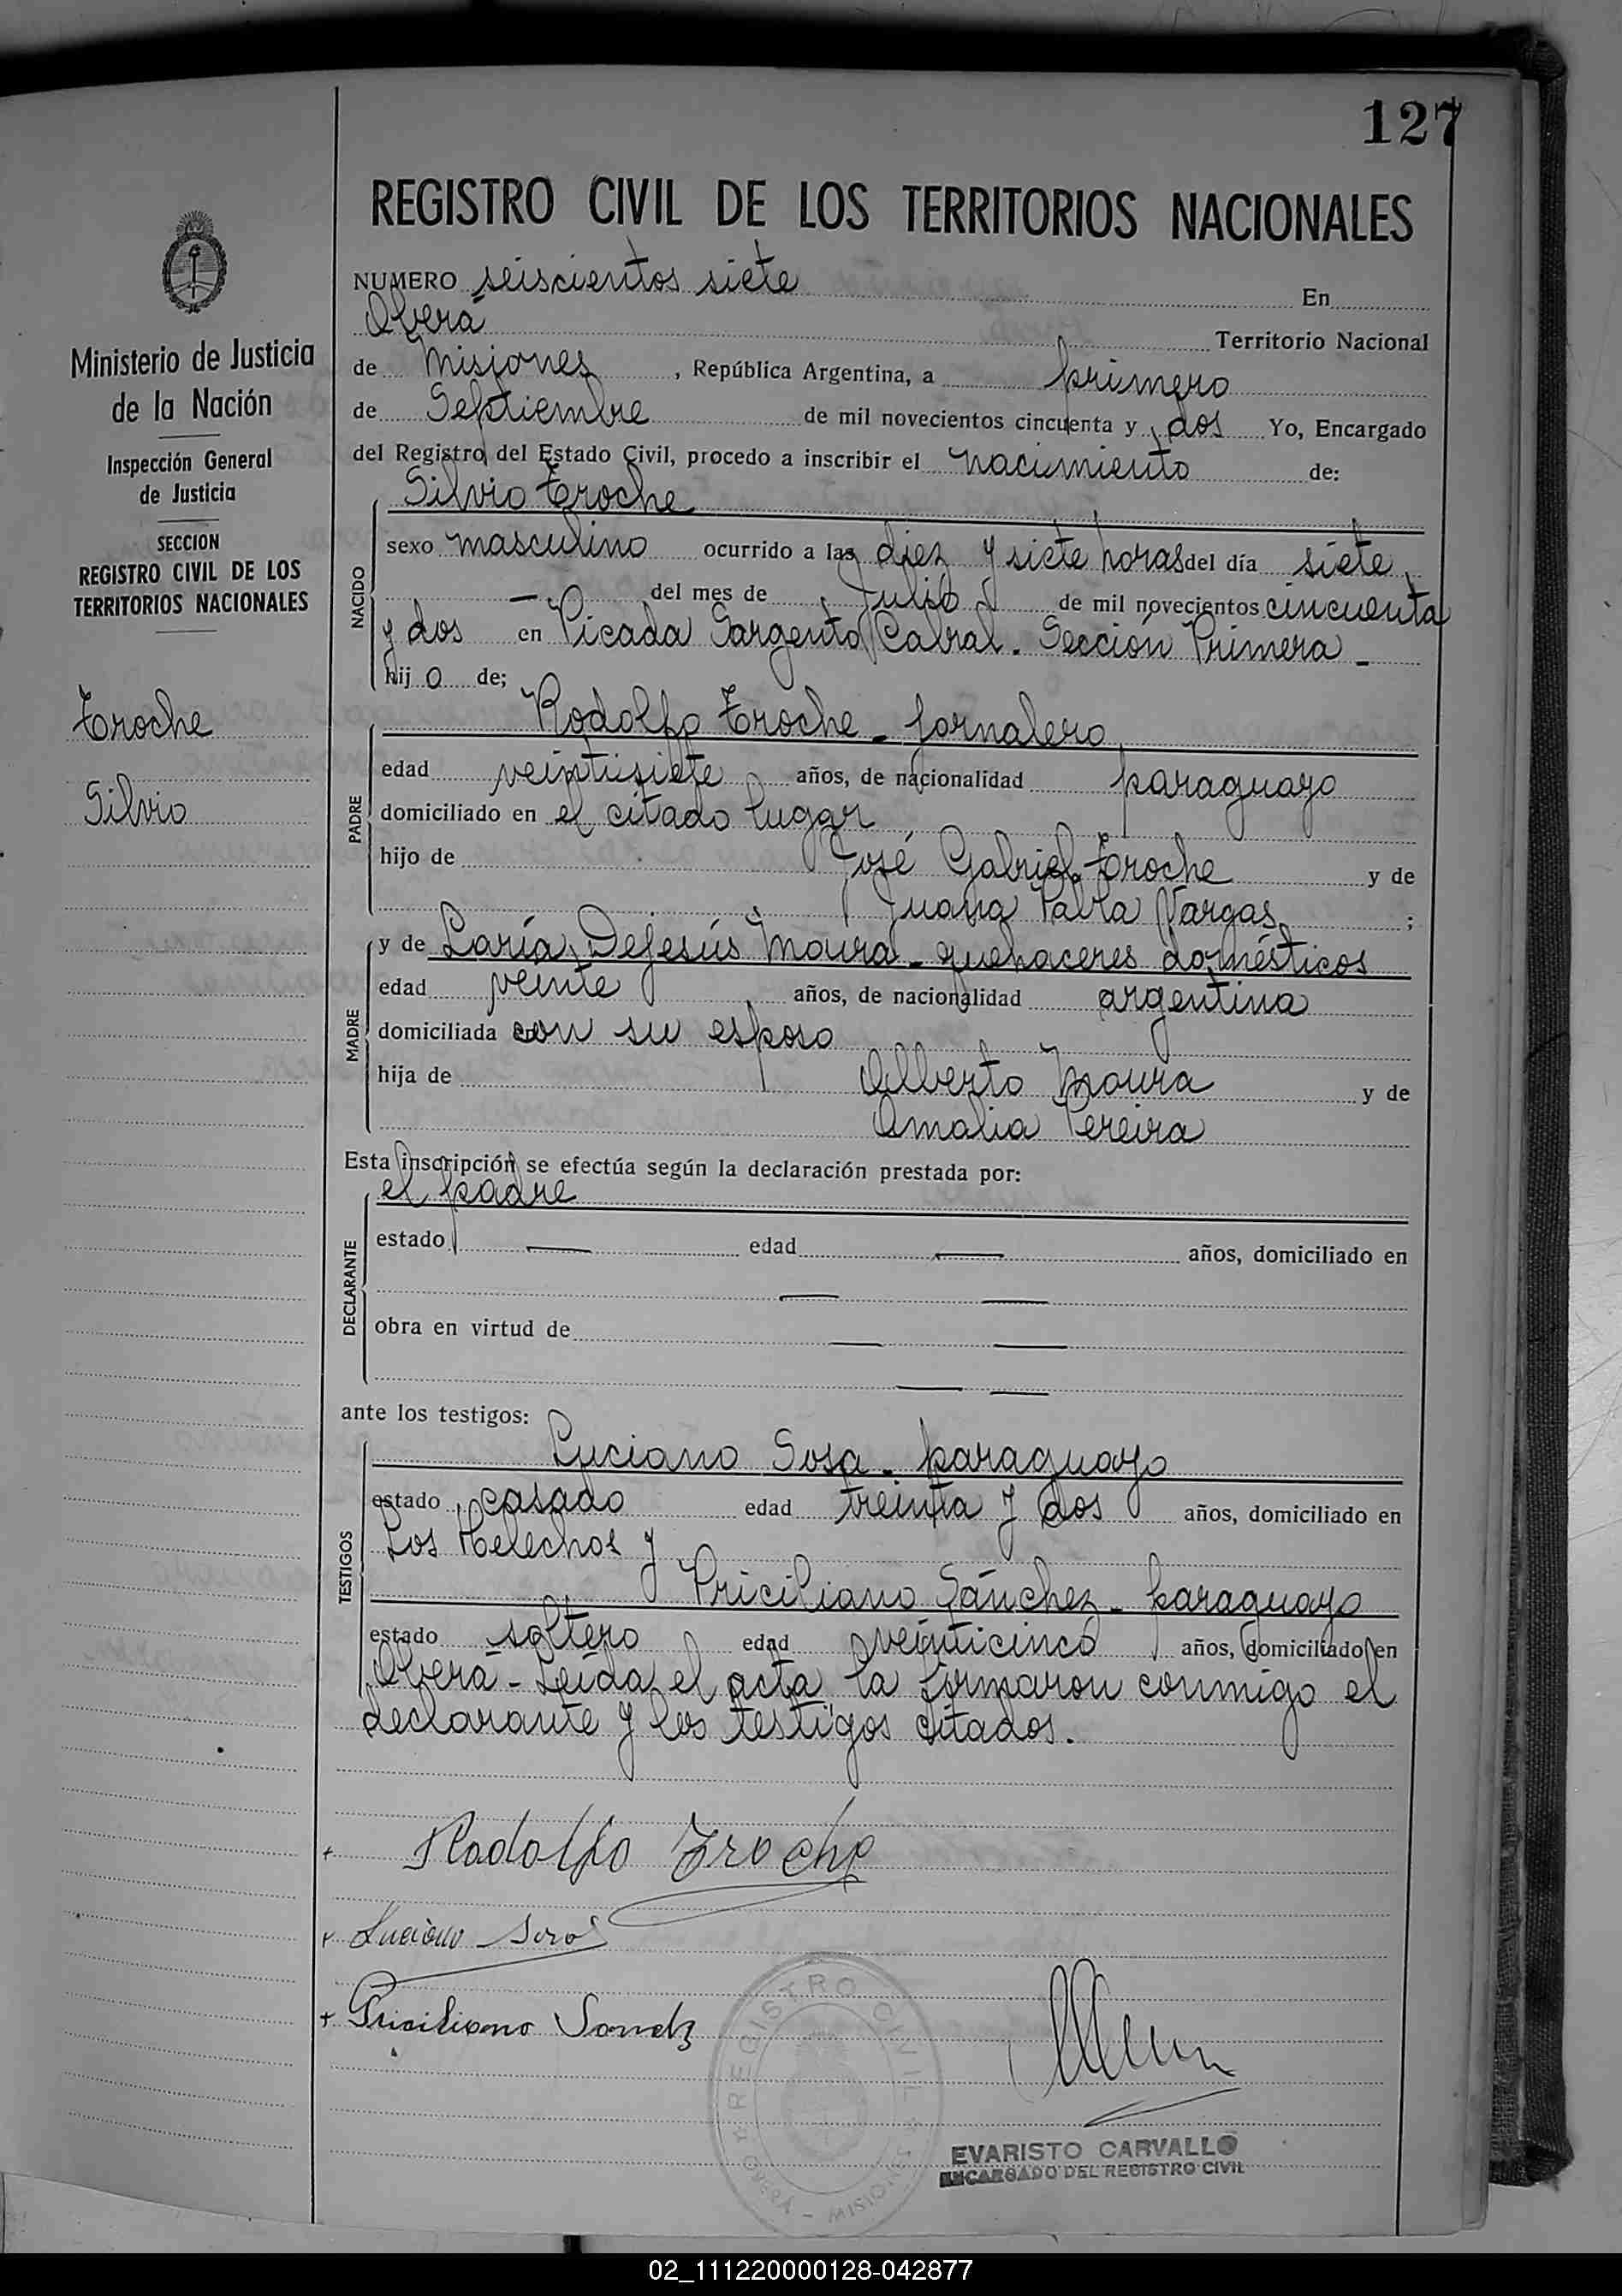 127
REGISTRO CIVIL DE LOS TERRITORIOS NACIONALES
Ministerio de Justicia
de la Nación
Inspección General
de Justicia
SECCION
REGISTRO CIVIL DE LOS
TERRITORIOS NACIONALES
Troche
Silvio
NUMERO seiscientos siete En
Oberá Territorio Nacional
de Misiones, República Argentina, a primero
de Septiembre de mil novecientos cincuenta y dos Yo, Encargado
del Registro del Estado Civil, procedo a inscribir el nacimiento de:
Silvio Troche
NACIDO
sexo masculino ocurrido a las diez y siete horas del día siete
— del mes de Julio de mil novecientos cincuenta
y dos en Picada Sargento Cabral. Sección Primera -
hij o de;
Rodolfo Troche - jornalero
PADRE
edad veintisiete años, de nacionalidad paraguayo
domiciliado en el citado lugar
hijo de José Gabriel Troche y de
Juana Pabla Vargas ;
y de Laría Dejesús Moura - quehaceres domésticos
MADRE
edad veinte años, de nacionalidad argentina
domiciliada con su esposo
hija de Alberto Moura y de
Amalia Pereira
Esta inscripción se efectúa según la declaración prestada por:
el padre
DECLARANTE
estado — edad — años, domiciliado en
— —
obra en virtud de — —
— —
ante los testigos:
Luciano Sosa - paraguayo
TESTIGOS
estado casado edad treinta y dos años, domiciliado en
Los Helechos y
Priciliano Sánchez - paraguayo
estado soltero edad veinticinco años, domiciliado en
Oberá - Leída el acta la firmaron conmigo el
declarante y los testigos citados.
+ Rodolfo Troche
+ Luciano Sosa
+ Priciliano Sanchz
REGISTRO CIVIL
OBERÁ - MISIONES
EVARISTO CARVALLO
ENCARGADO DEL REGISTRO CIVIL
02_111220000128-042877